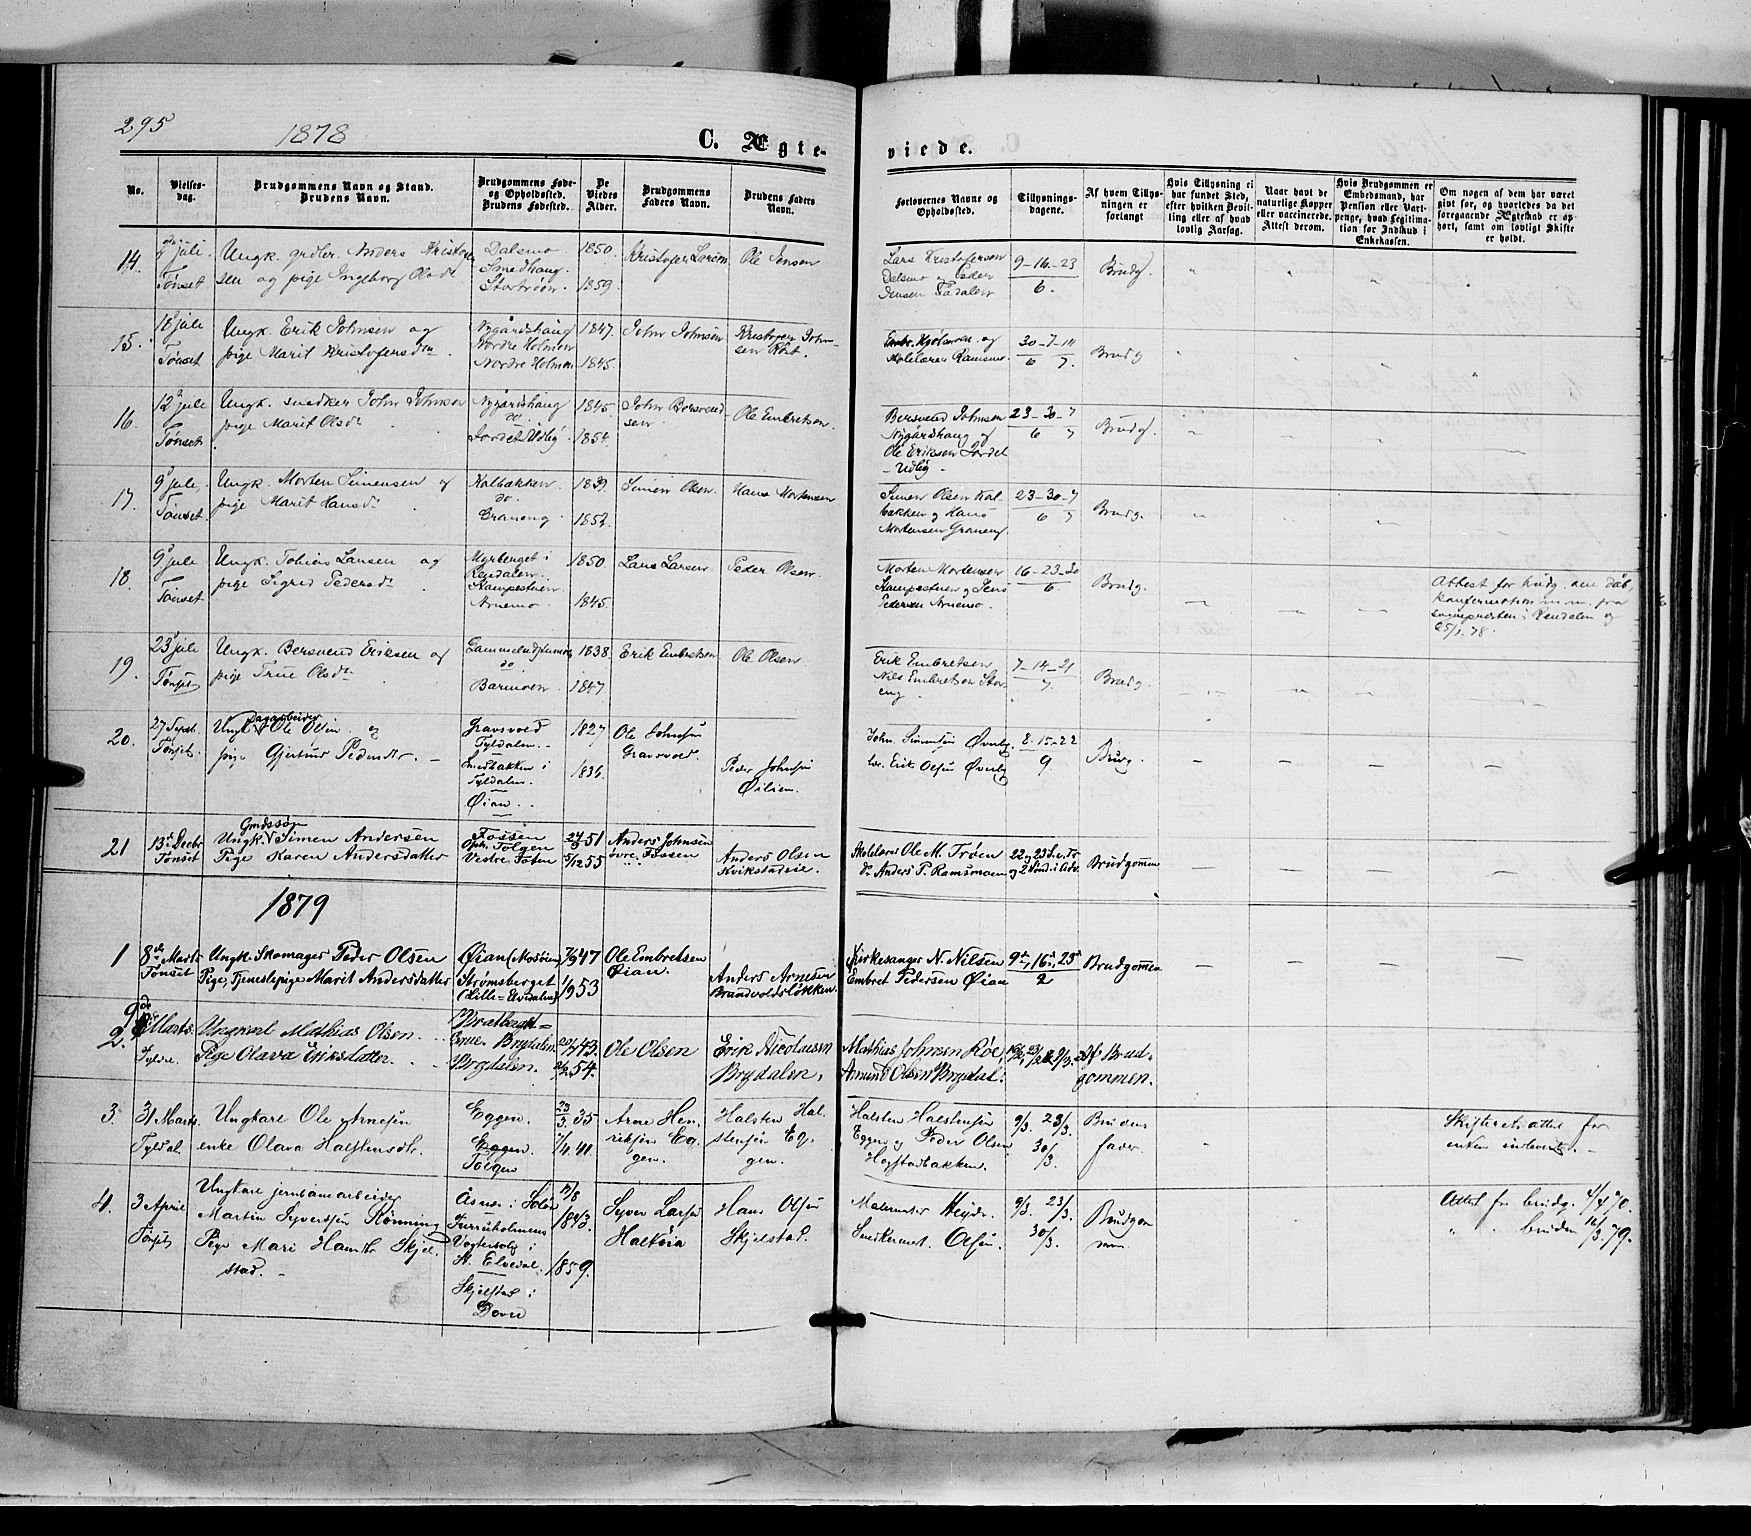 295
1878
C. Ægte-
viede.
No.
Vielses-
dag.
Brudgommens Navn og Stand.
Brudens Navn.
Brudgommens Føde-
og Opholdssted.
Brudens Fødested.
De
Viedes
Alder.
Brudgommens
Faders Navn.
Brudens Faders
Navn.
Forlovernes Navne og
Opholdssted.
Tillysnings-
dagene.
Af hvem Tillys-
ningen er
forlangt
Hvis Tillysning ei
har fundet Sted,
efter hvilken Bevil-
ling eller af hvad
lovlig Aarsag.
Naar havt de
naturlige Kopper
eller vaccinerede.
Attest derom.
Hvis Brudgommen er
Embedsmand, har
Pension eller Vart-
penge, hvad Legitima-
tion for Indskud i
Enkekassen.
Om nogen af dem har været
gift før, og hvorledes da det
foregaaende Ægteskab er op-
hørt, samt om lovligt Skifte
er holdt.
14.
juli
Tønset
Ungk. Anders Kristofer
sen og pige Ingeborg Olsdr
Dalsmo
Smedhaug.
Stortrøen.
1850.
1859.
Kristofer Larsen
Ole Jensen
Lars Kristofersen
Dalsmo og Peder
Jensen
9-16-23
6.
Brudg.
15.
juli
Tønset
Ungk. Erik Johnsen og
pige Marit Kristofersdr
Nygårdshaug
Nordre Holmen
Nordre Holmen
1847.
1845.
John Johnsen
Kristofer John-
sen
og
Ramsmo
30-7-14
6 7.
Brudg
16
12 juli
Tønset
Ungk. snedker John Johnsen
pige Marit Olsdr
Nygårdshaug
do
Jordet Udlig
1845
1854.
John Bersvend
sen
Ole Embretsen.
Bersvend Johnsen
Nygårdshaug og
Ole Eriksen Jordet
Udlig
23-30-7
6 7
Brudg.
17.
9 juli
Tønset
Ungk. Morten Simensen og
pige Marit Hansdr
Kalbakken
do.
Graneng
1839.
1852.
Simen Olsen.
Hans Mortensen
Simen Olsen Kal
bakken og Hans
Mortensen Graneng
23-30-7
6 7
Brudg.
18.
9 juli
Tønset
Ungk. Tobias Larsen og
pige Sigrid Pedersdr
Myrberget i
Rendalen.
Arnemo
1850.
1845.
Lars Larsen
Peder Olsen
Morten Mortensen
og Jens
Pedersen Arnemo.
16-23-30
6
Brudg.
Attest for brudg. om dåb,
konfirmation m.m. fra
sognepresten i Rendalen og
25/1.78.
19.
23 juli
Tønset
Ungk. Bersvend Eriksen og
pige True Olsdr
do
Barmoen
1838.
1847.
Erik Embretsen
Ole Olsen
Erik Embretsen
Nils Embretsen Stor
eng
7-14-21
7.
Brudg.
20.
27 Septb.
Tønset.
Dagarbeider
Ungk. Ole Olsen og
pige Gjertrud Pedersdtr.
Gravvold
Tyldalen.
i
Tyldalen.
Øian.
1827
1836.
Ole Johnsen
Gravvold.
Peder Johnsen
Øilien.
John Simensen Øverby
Erik Olsen Øverby
8-15-22
9.
Brudg.
21
13de Decbr
Tønset
Gmdssøn
Ungk. Simen Andersen
Pige Karen Andersdatter
Fossen
Tolgen
Vestre Toten
51
5/12 55
Anders Johnsen
øvre Fossen
Anders Olsen
Kvikstadeie.
Ole M. Trøen
dr Anders P. Ramsmoen
Brudgommen
1879
1
8de Marts
Tønset
Ungk. Skomager Peder Olsen
Pige, Tjenestepige Marit Andersdatter
Øian (Mosøien)
Strømsberget
(Lille-Elvedalen)
47
1/9 53
Ole Embretsen
Øian.
Anders Arnesen
Brandvoldsløkken.
Kirkesanger N. Nilsen
Embret Pedersen Øian
9de, 16de, 23de
2
Brudgommen
2.
9de
Marts
Tyldal.
Ungkarl Mathias Olsen.
Pige Olava Eriksdatter.
Bratberget
Brydalen.
Brydalen.
43.
54.
Ole Olsen
Erik Nicolaisen
Brydalen.
Mathias Johnsen Røe,
Amund Olsen Brydal.
Af Brud-
gommen.
3.
31 Marts
Tyldal.
Ungkarl Ole Arnesen
enke Olava Halstensdtr.
Eggen.
Eggen
Tolgen
23/3.35
7/4.41
Arne Hen
riksen Eg
gen.
Halsten Hal
stensen Eg
gen.
Halsten Halstensen
Eggen og Peder Olsen
Hogstadbakken.
9/3. 23/3.
30/3
Brudens
fader
Skifteretsattest for
enken indleveret.
4.
3 April
Tønset
Ungkarl jernbanearbeider
Martin Syversen Rønning
Pige Mari Hansdtr. Skjel
stad.
Åsnes i Solør
Furuholmens
Vogterbolig i
N. Elvedal.
Skjelstad i
Dovre
17/8
1843.
1859.
Syver Larsen
Halkøia
Hans Olsen
Skjelstad.
Heyde.
Snedkermst. Olsen.
9/3. 23/3.
30/3.
Brudgom
men
Attest for brudg. 4/4 70.
" " bruden 16/3 79.